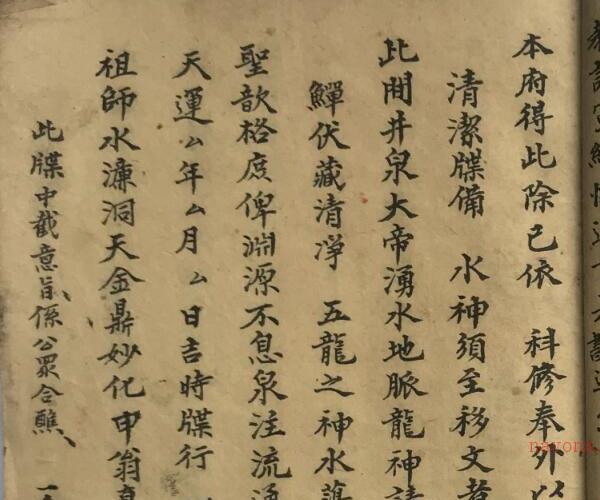 本府得此除已依 科修奉外
清潔牒備 水神須至移文者
此間井泉大帝湧水地脈龍神請
鱓伏藏清淨 五龍之神水蕩
聖歆格庶俾淵源不息泉注流通
天運厶年厶月厶日吉時牒行
祖師水濂洞天金鼎妙化申翁真
此牒中截意旨係公眾合醮